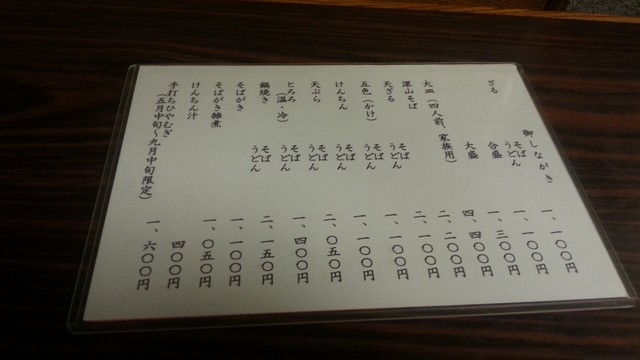 御しながき
ざる そば うどん 一、一〇〇円
合盛 一、一〇〇円
大盛 一、三〇〇円
大皿（四人前、家族用） 四、四〇〇円
深山そば 二、二〇〇円
天ざる そば うどん 二、一〇〇円
五色（かけ） 一、一〇〇円
けんちん そば うどん 一、一〇〇円
天ぷら そば うどん 二、〇五〇円
とろろ（温・冷） そば うどん 一、四〇〇円
鍋焼き そば うどん 二、一五〇円
そばがき 一、一〇〇円
そばがき雑煮 一、〇五〇円
けんちん汁 四〇〇円
手打ちひやむぎ 一、六〇〇円
（五月中旬～九月中旬限定）